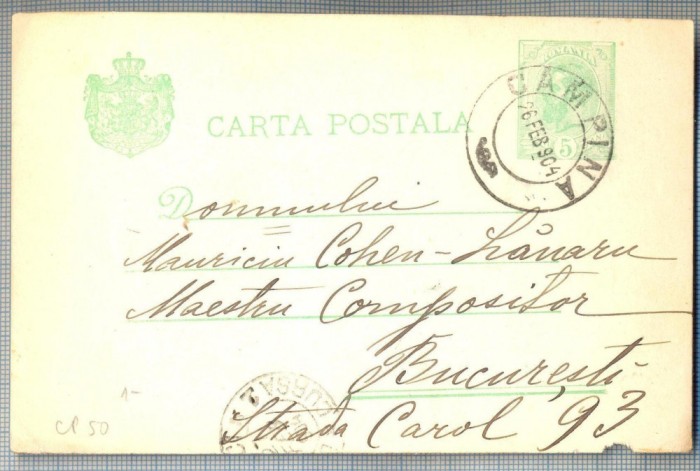 ROMANIA
CAMPINA
26 FEB 904
5
CARTA POSTALA
Domnului
Mauriciu Cohen-Lânaru
Maestru Compositor
București
Strada Carol 93
CURSA 2
1-
CP 50